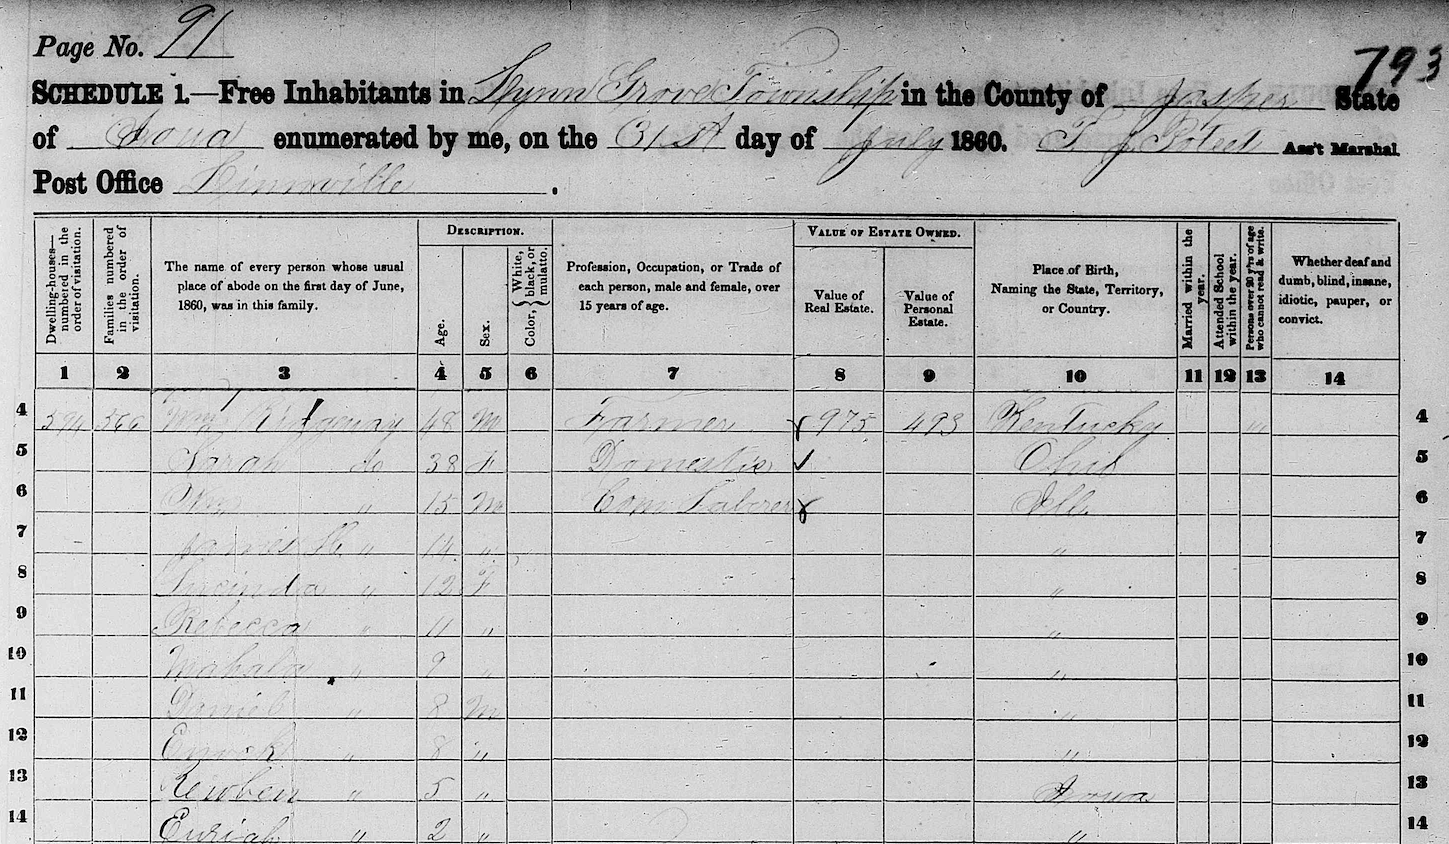 Page No. 91
793
SCHEDULE 1.—Free Inhabitants in Lynn Grove Township in the County of Jasper State
of Iowa enumerated by me, on the 31st day of July 1860. F. J. Ass't Marshal
Post Office Linnville .
Dwelling-houses—numbered in the order of visitation.
Families numbered in the order of visitation.
The name of every person whose usual place of abode on the first day of June, 1860, was in this family.
DESCRIPTION.
Age.
Sex.
Color, { White, black, or mulatto.
Profession, Occupation, or Trade of each person, male and female, over 15 years of age.
VALUE OF ESTATE OWNED.
Value of Real Estate.
Value of Personal Estate.
Place of Birth, Naming the State, Territory, or Country.
Married within the year.
Attended School within the year.
Persons over 20 y'rs of age who cannot read & write.
Whether deaf and dumb, blind, insane, idiotic, pauper, or convict.
1 2 3 4 5 6 7 8 9 10 11 12 13 14
4 594 566 Wm Ridgeway 48 M Farmer 975 493 Kentucky " 4
5 Sarah do 38 F Domestic Ohio 5
6 Wm " 15 M Com Laborer Ill. 6
7 James H. " 14 " " 7
8 Lucinda " 12 F " 8
9 Rebecca " 11 " " 9
10 Mahala " 9 " " 10
11 Daniel " 8 M " 11
12 Enoch " 8 " " 12
13 Reuben " 5 " Iowa 13
14 Euriah " 2 " " 14